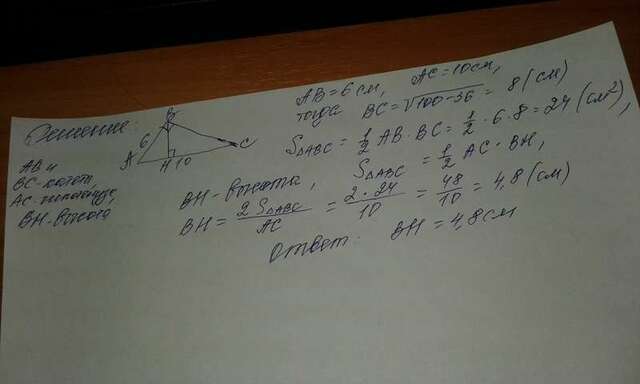 Решение:
B
6
A
H 10
C
AB и
BC - катет,
AC - гипотенуза,
BH - высота
AB = 6 см, AC = 10 см,
тогда BC = √100-36 = 8 (см)
S△ABC = 1/2 AB · BC = 1/2 · 6 · 8 = 24 (см²),
BH - высота, S△ABC = 1/2 AC · BH,
BH = 2S△ABC/AC = 2·24/10 = 48/10 = 4,8 (см)
Ответ: BH = 4,8 см